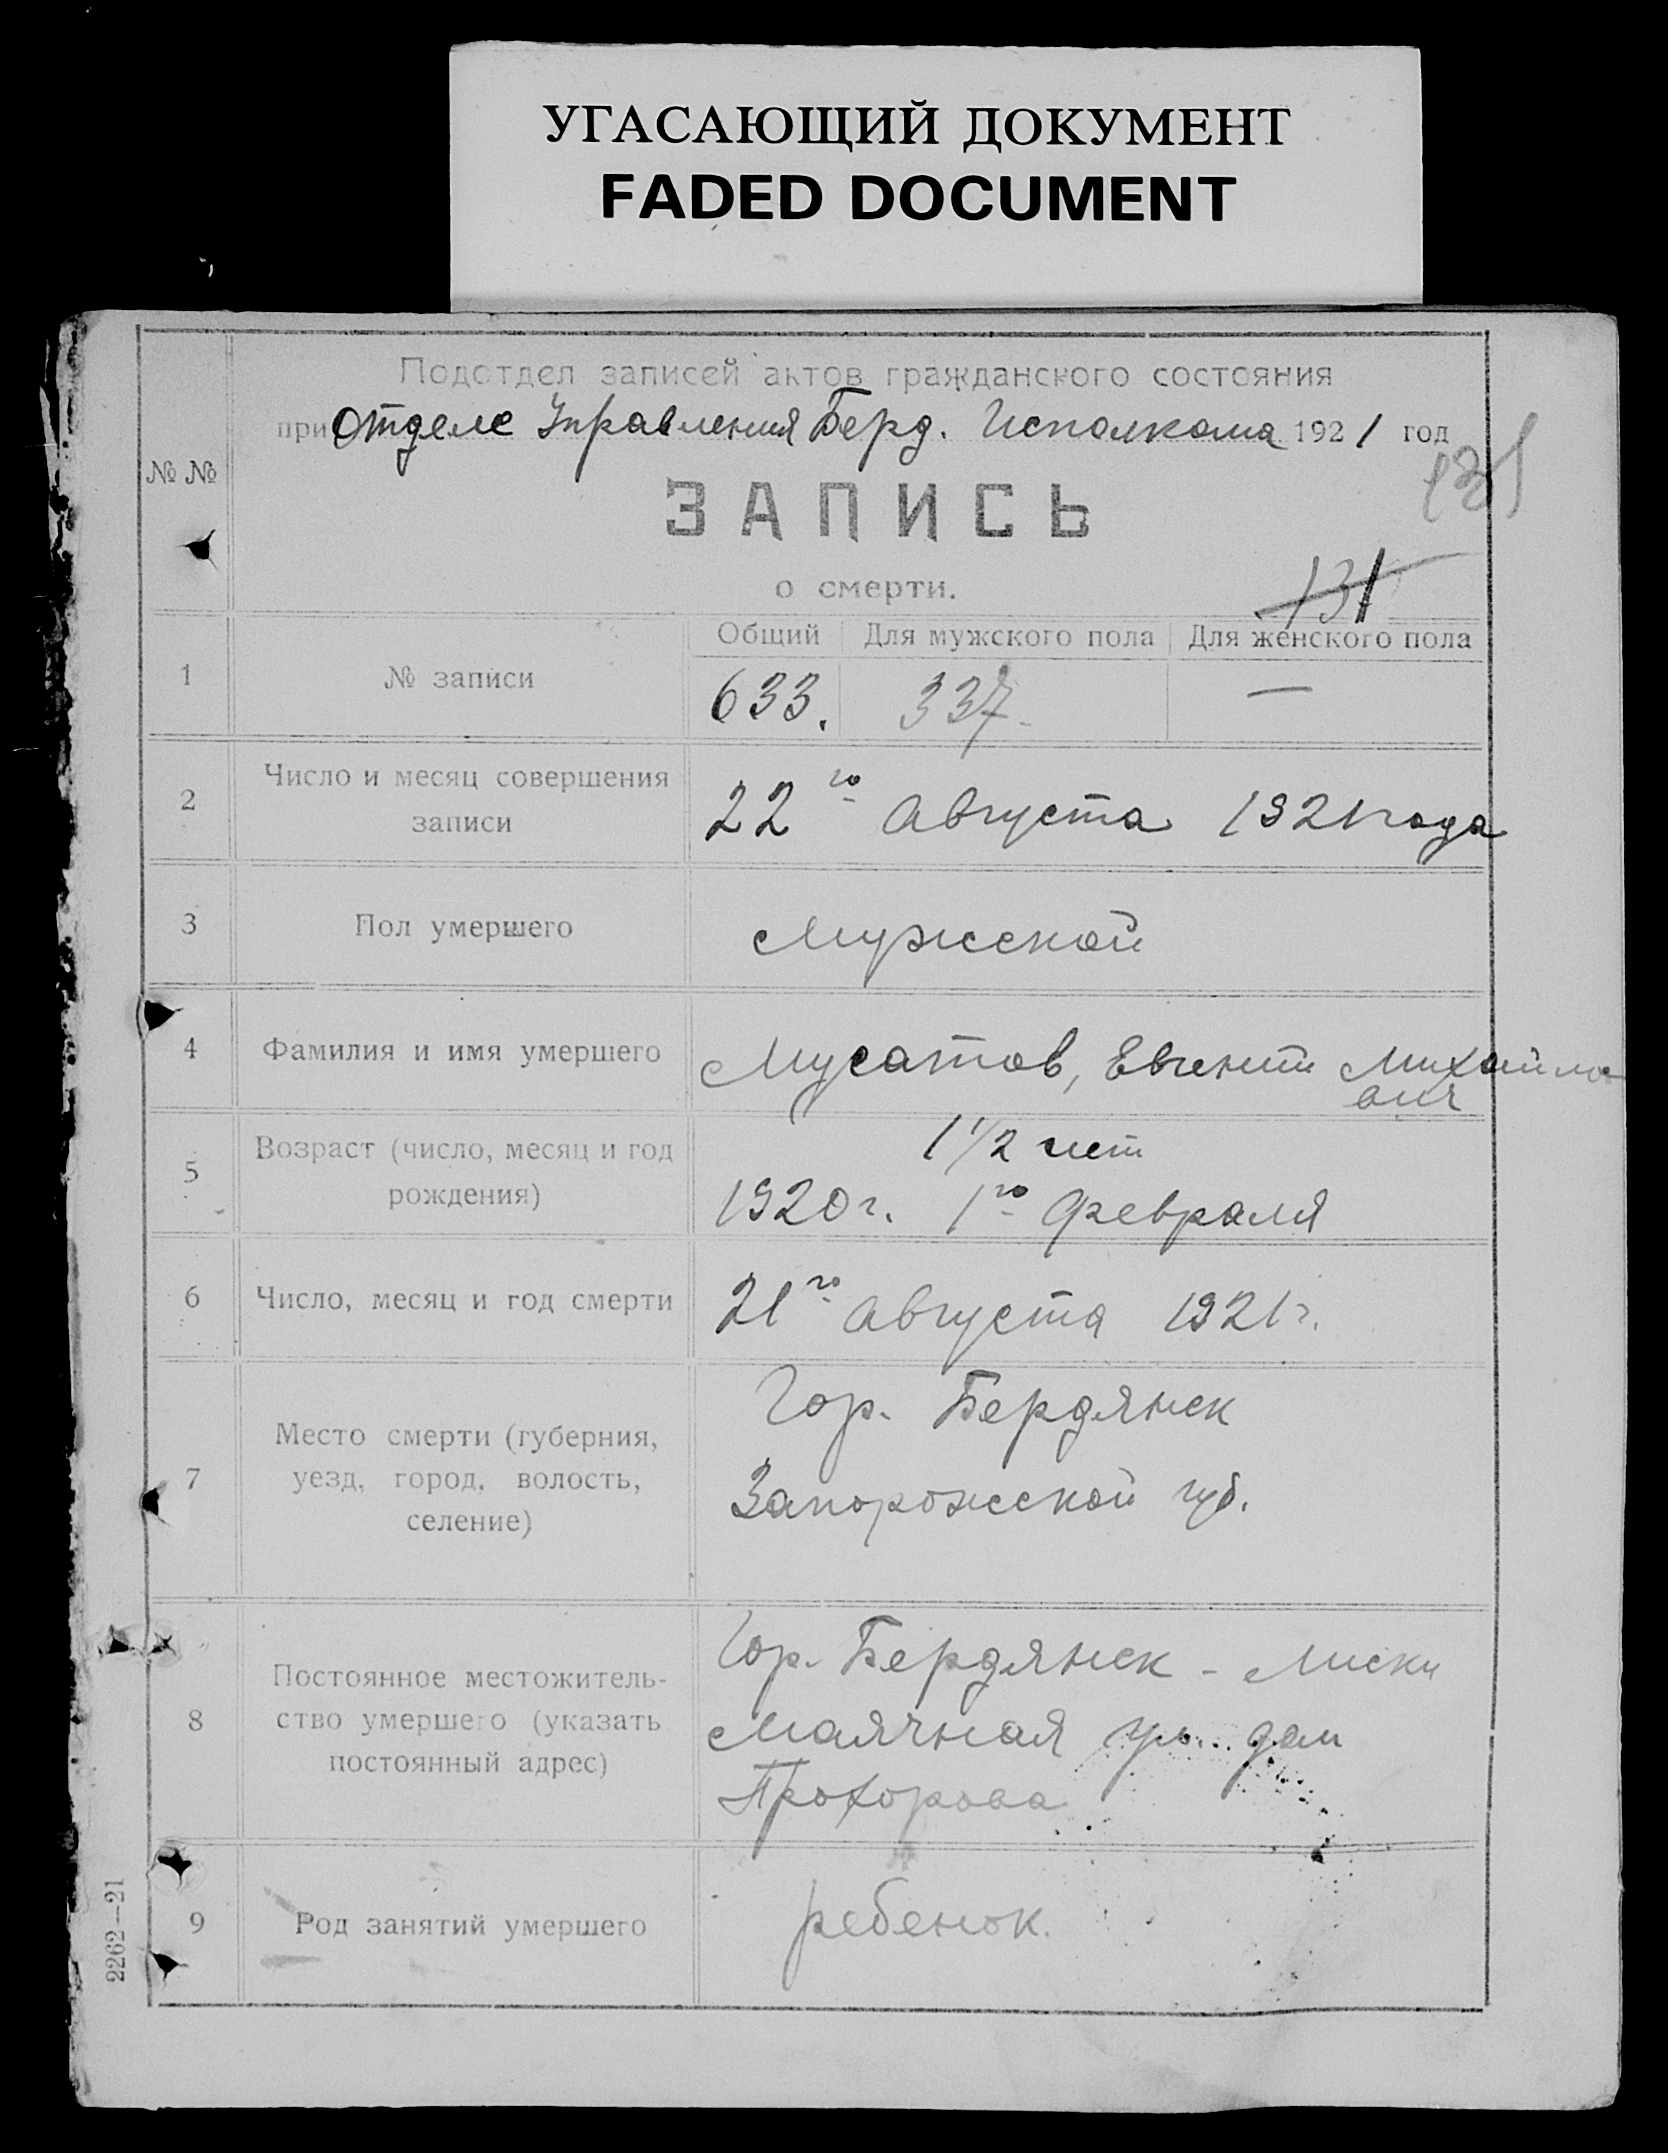 УГАСАЮЩИЙ ДОКУМЕНТ
FADED DOCUMENT
Подотдел записей актов гражданского состояния
при Отделе Управления Берд. Исполкома 1921 год
131
№ №
ЗАПИСЬ
о смерти.
131
Общий Для мужского пола Для женского пола
1 № записи 633. 337. —
2 Число и месяц совершения
записи
22го Августа 1921 года
3 Пол умершего Мужской
4 Фамилия и имя умершего Мусатов, Евгений Михайло
вич
5 Возраст (число, месяц и год
рождения)
1 1/2 лет
1920 г. 1го Февраля
6 Число, месяц и год смерти 21го Августа 1921 г.
7 Место смерти (губерния,
уезд, город, волость,
селение)
Гор. Бердянск
Запорожской губ.
8 Постоянное местожитель-
ство умершего (указать
постоянный адрес)
Гор. Бердянск - Лиски
Маячная ул. дом
Прохорова
9 Род занятий умершего ребенок.
2262—21